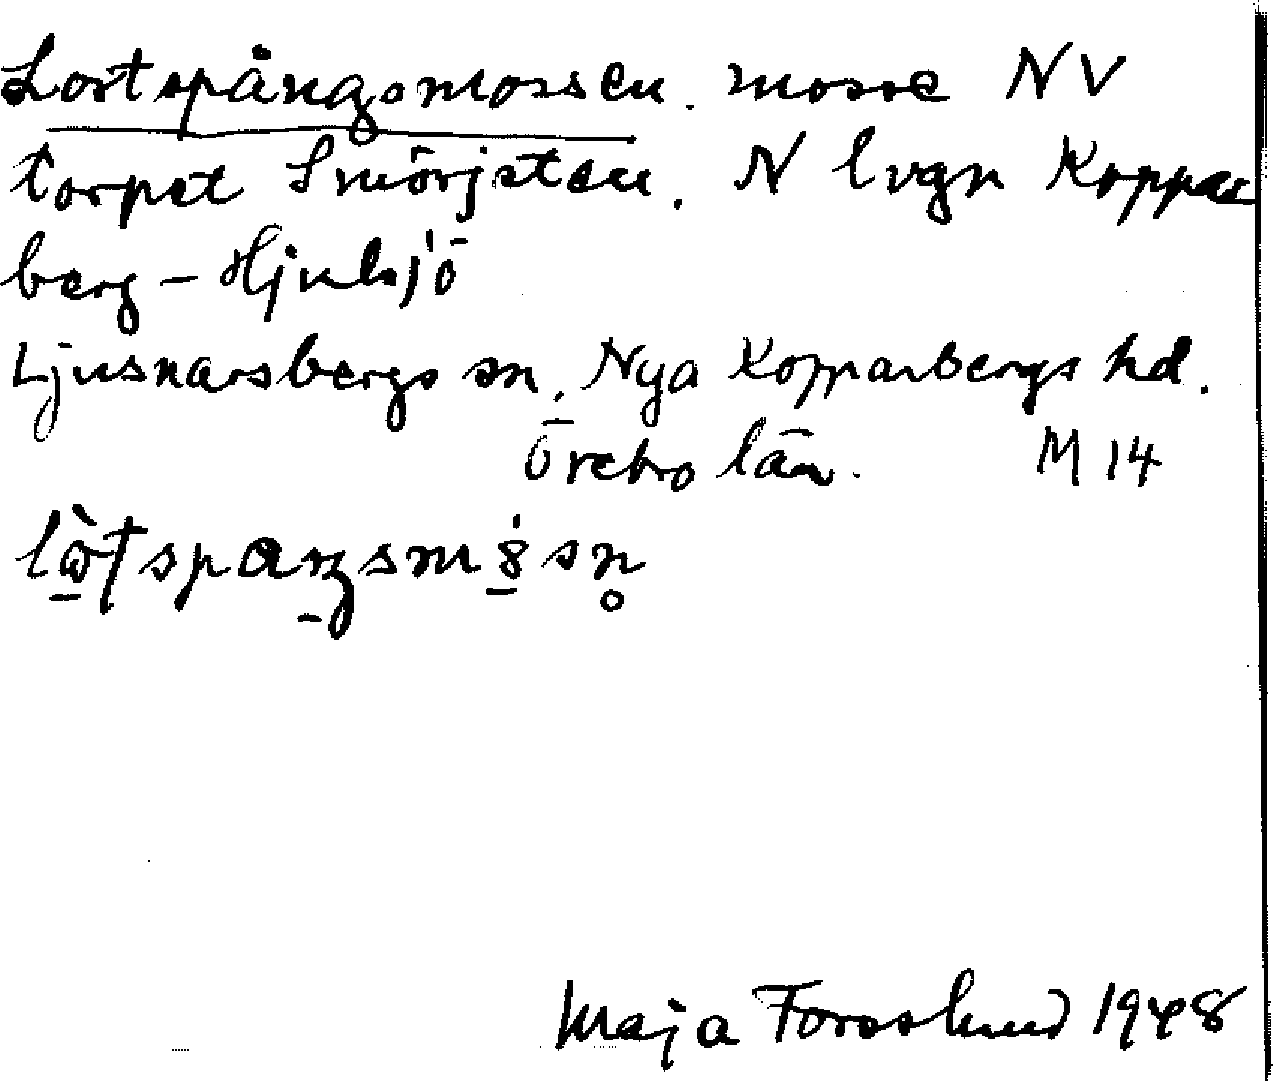 Lortspångsmossen. mosse NV
torpet Smörjsten. N lvgn Koppar
berg - Hjulsjö
Ljusnarsbergs sn. Nya Kopparbergs hd.
Örebro län. M 14
Maja Forsslund 1948